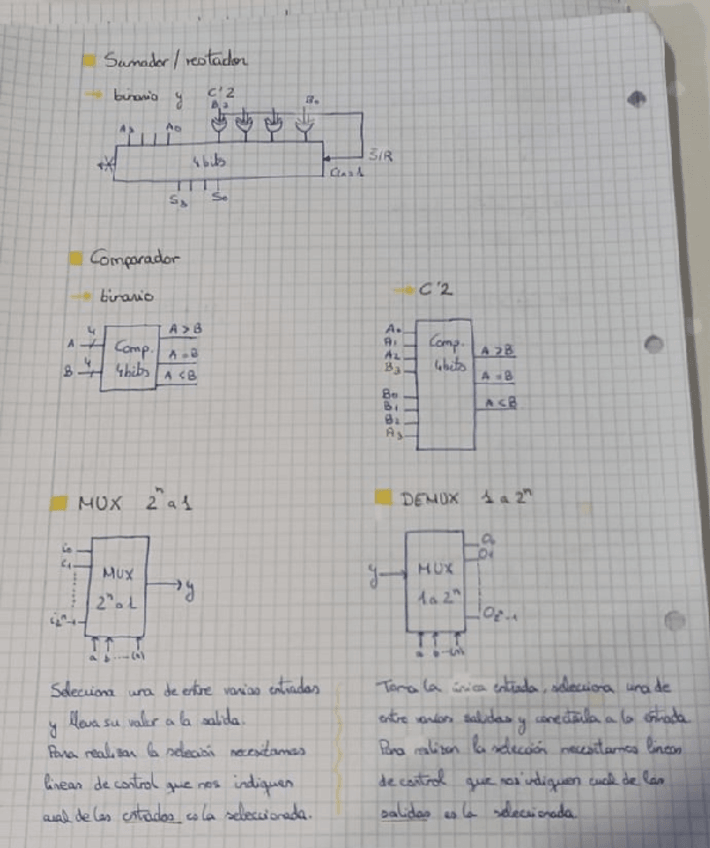 Sumador/restador
→ binario y C'2
B3 B0
A3 A0
4 bits
S/R
S3 S0
Comparador
→ binario
4
A
4
B
Comp.
4bits
A > B
A = B
A < B
→ C'2
A0
A1
A2
B3
B0
B1
B2
A3
Comp.
4bits
A > B
A = B
A < B
MUX 2ⁿ a 1
i0
i1
MUX
2ⁿ a 1
y
a b ... (n)
Selecciona una de entre varias entradas
y lleva su valor a la salida.
Para realizar la selección necesitamos
líneas de control que nos indiquen
cual de las entradas es la seleccionada.
DEMUX 1 a 2ⁿ
y
MUX
1 a 2ⁿ
O1
O2ⁿ-1
a b ... (n)
Toma la única entrada, selecciona una de
entre varias salidas y conectarla a la entrada.
Para realizar la selección necesitamos líneas
de control que nos indiquen cual de las
salidas es la seleccionada